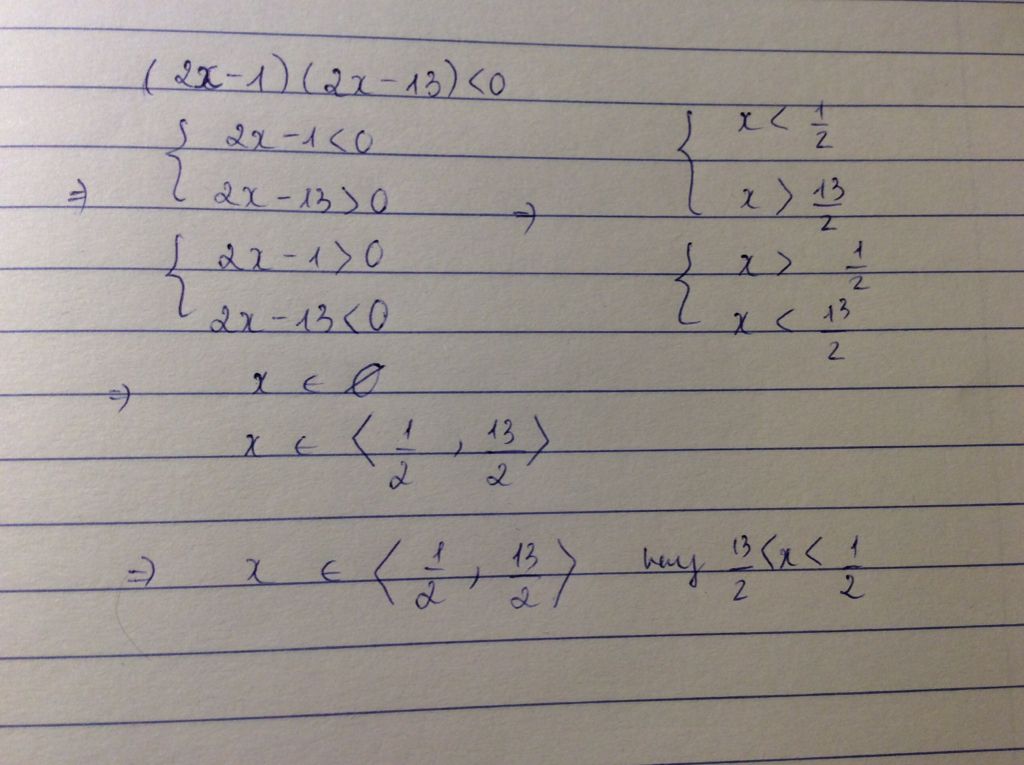 (2x-1)(2x-13)<0
{ 2x-1<0 { x < 1/2
⇒ { 2x-13>0 ⇒ { x > 13/2
{ 2x-1>0 { x > 1/2
{ 2x-13<0 { x < 13/2
⇒ x ∈ ∅
x ∈ ⟨ 1/2 , 13/2 ⟩
⇒ x ∈ ⟨ 1/2 , 13/2 ⟩ hay 13/2 < x < 1/2